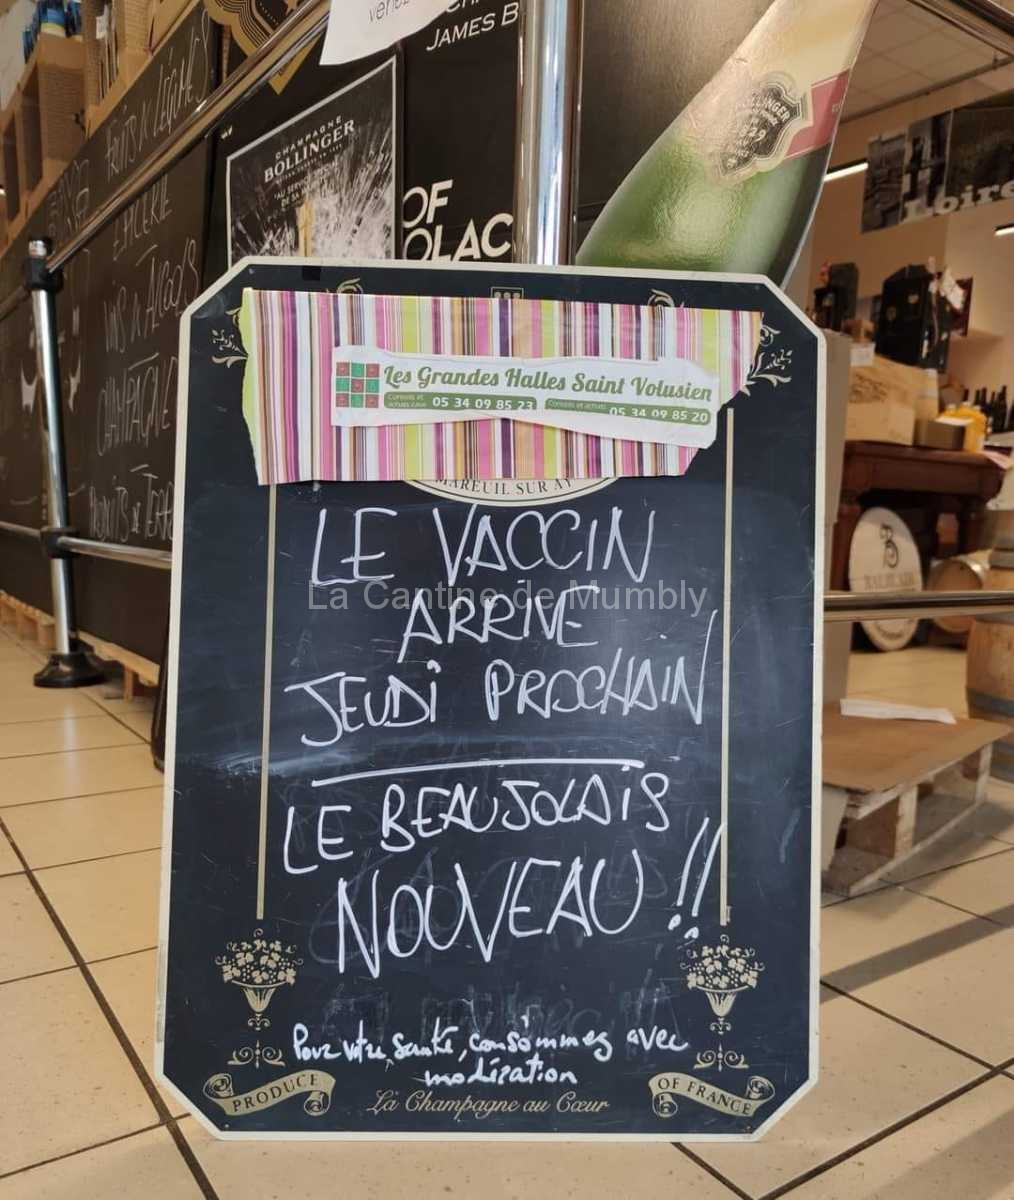 venez
JAMES B
CHAMPAGNE
BOLLINGER
OF
OLAC
FRUITS & LÉGUMES
EPICERIE
VINS & ALCOOLS
CHAMPAGNE
PRODUITS
BOLLINGER
1829
Loire
Les Grandes Halles Saint Volusien
05 34 09 85 23
05 34 09 85 20
MAREUIL SUR AY
LE VACCIN
La Cantine de Mumbly
ARRIVE
JEUDi PROCHAIN
LE BEAUJOLAiS
NOUVEAU !!
Pour votre santé, consommez avec
modération
PRODUCE
OF FRANCE
La Champagne au Cœur